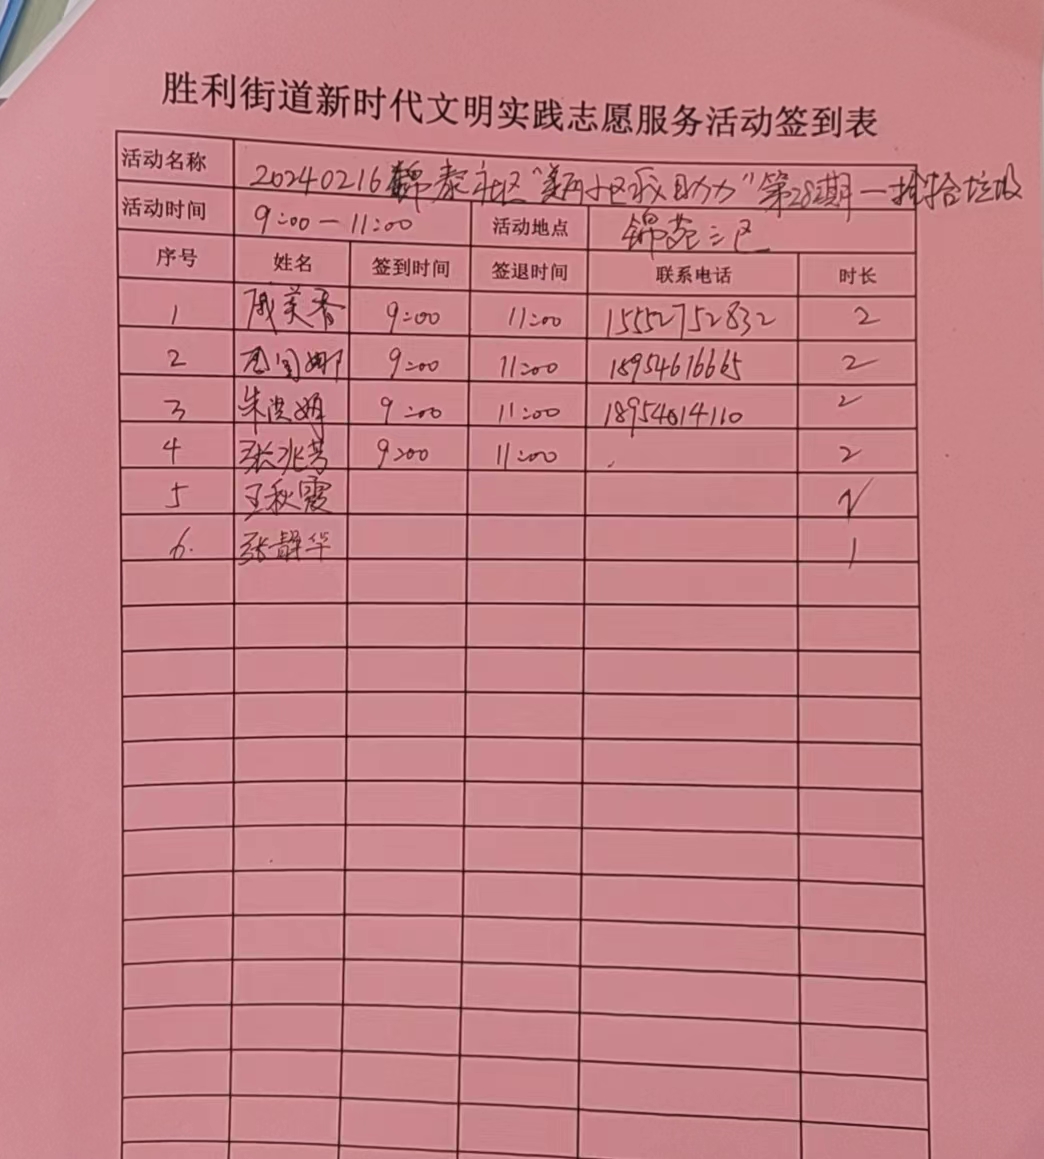 胜利街道新时代文明实践志愿服务活动签到表
活动名称 20240216锦泰社区“美丽小区我助力”第28期—捡拾垃圾
活动时间 9:00—11:00 活动地点 锦苑三区
序号 姓名 签到时间 签退时间 联系电话 时长
1 成美香 9:00 11:00 15552752832 2
2 9:00 11:00 18954616665 2
3 朱洪娟 9:00 11:00 18954614110 2
4 张兆芳 9:00 11:00 2
5 王秋霞
6. 张静华 1